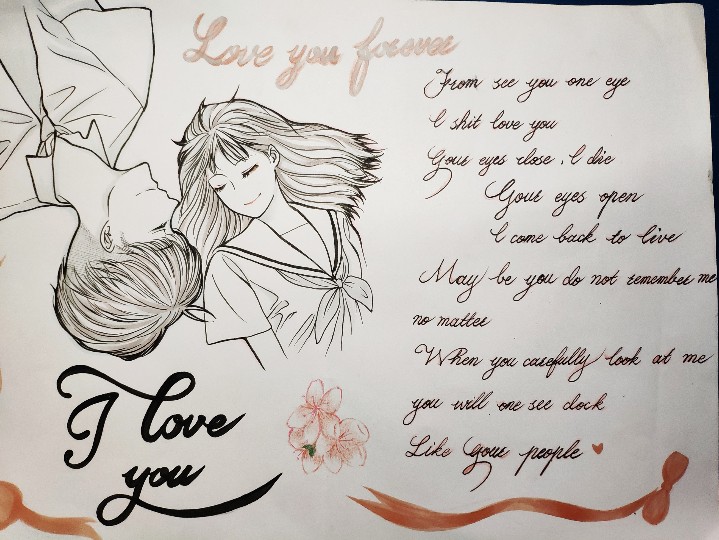 Love you forever
From see you one eye
I shit love you
Your eyes close, I die
Your eyes open
I come back to live
May be you do not remember me
no matter
When you carefully look at me
you will one see clock
Like your people
I love
you